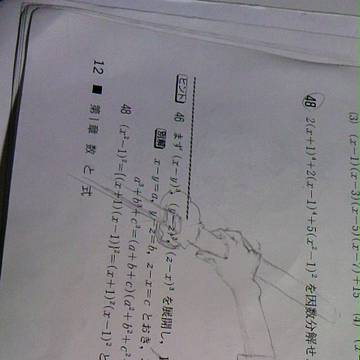 (3) (x-1)(x-3)(x-5)(x-7)+15 (4)
48 2(x+1)⁴+2(x-1)⁴+5(x²-1)² を因数分解せ
ヒント 46 まず (x-y)³, (y-z)³, (z-x)³ を展開し,
別解 x-y=a, y-z=b, z-x=c とおき,
a³+b³+c³=(a+b+c)(a²+b²+c²
48 (x²-1)²={(x+1)(x-1)}²=(x+1)²(x-1)² と
12 ■ 第1章 数と式